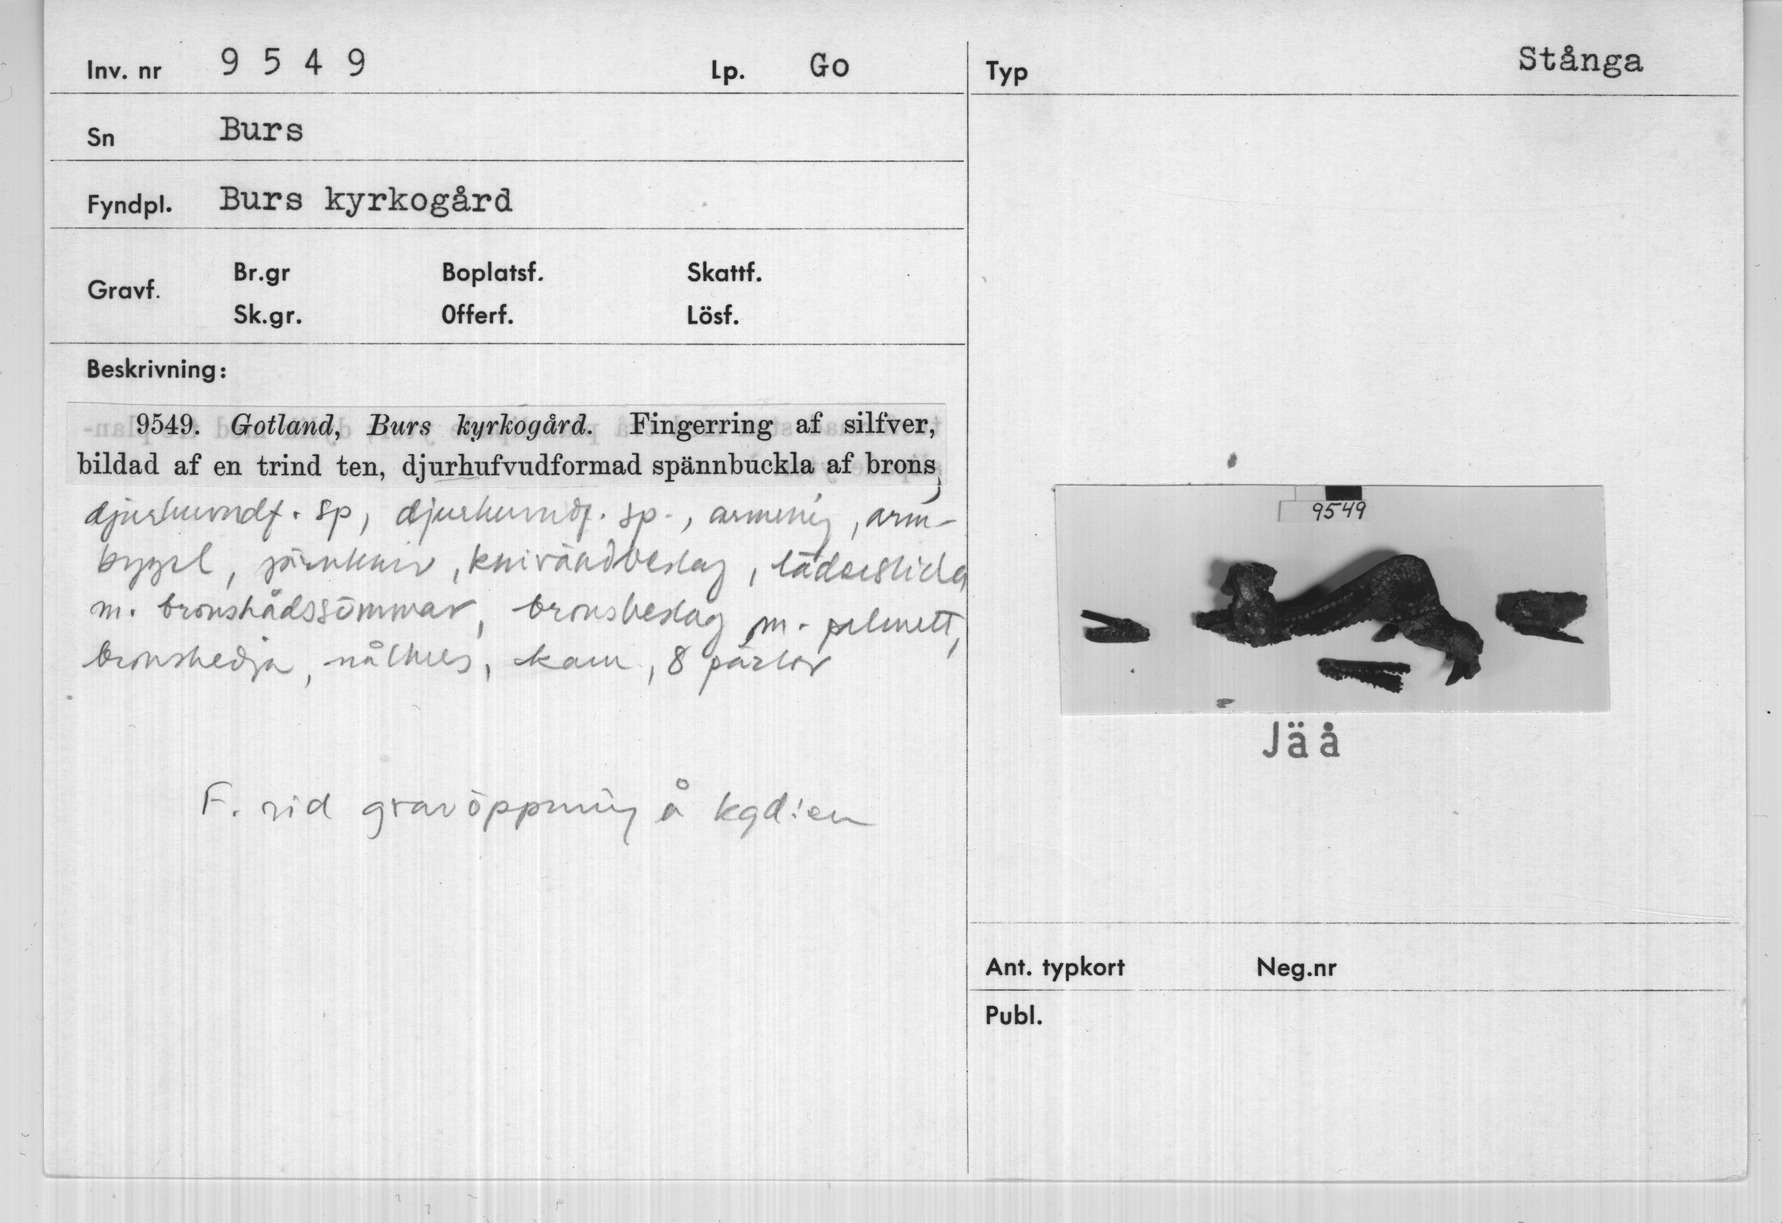 Inv. nr 9 5 4 9 Lp. Go
Sn Burs
Fyndpl. Burs kyrkogård
Gravf. Br.gr Boplatsf. Skattf.
Sk.gr. Offerf. Lösf.
Beskrivning:
9549. Gotland, Burs kyrkogård. Fingerring af silfver,
bildad af en trind ten, djurhufvudformad spännbuckla af brons,
djurhuvudf. sp, djurhuvudf. sp., armring, arm-
bygel, järnkniv, knivändbeslag, läderslida
m. bronstrådssömmar, bronsbeslag m. palmett,
bronskedja, nålhus, kam, 8 pärlor
F. vid gravöppning å kgd:en
Typ Stånga
9549
Jäå
Ant. typkort Neg.nr
Publ.